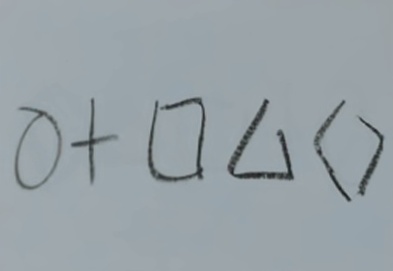 ○+□△◇